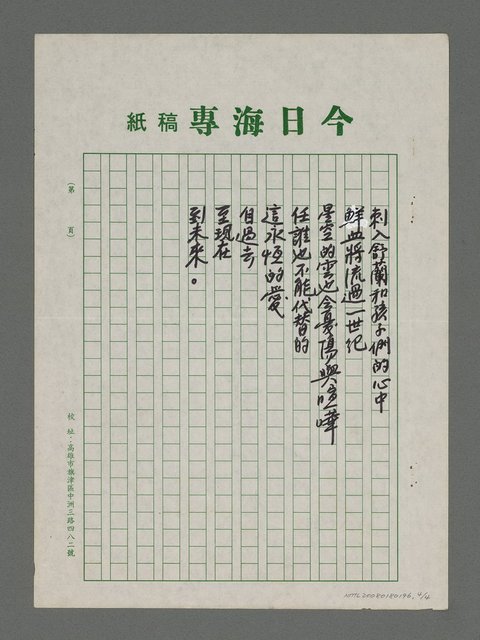 今日海專稿紙
刺入舒蘭和孩子們的心中
鮮血將流過一世紀
星空的雲也會憂傷與喧嘩
任誰也不能代替的
這永恆的愛
自過去
至現在
到未來。
(第 頁)
校址：高雄市旗津區中洲三路四八二號
NMTL20080180196, 4/4